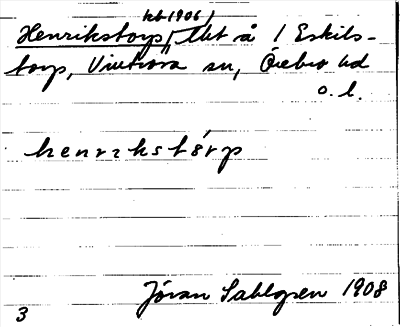 kb 1906
Henrikstorp, lht å 1 Eskils-
torp, Vintrosa sn, Örebro hd
o. l.
henrikstórp
Jöran Sahlgren 1908
3